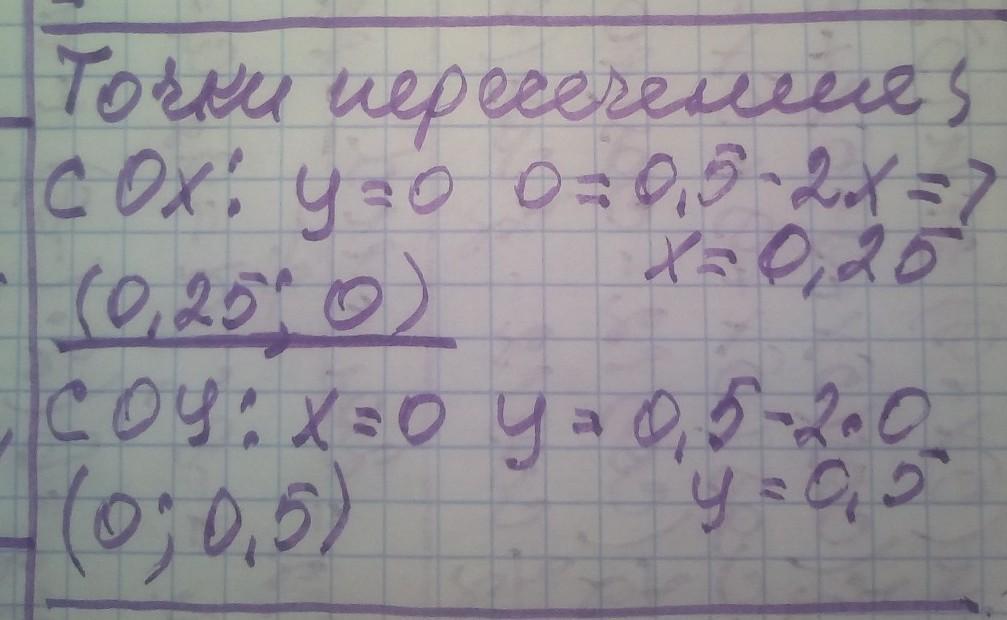 Точки пересечения;
С OX: y=0 0=0,5-2x=>
x=0,25
(0,25; 0)
С OY: x=0 y=0,5-2·0
y=0,5
(0; 0,5)